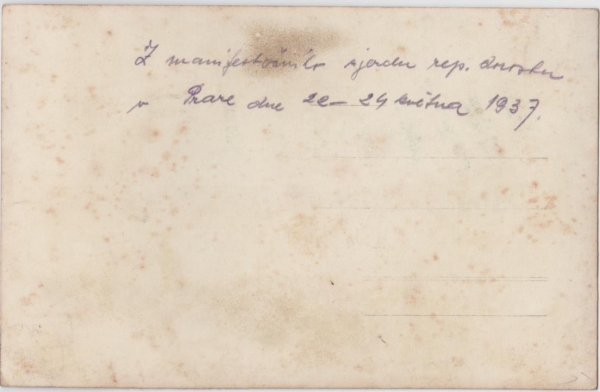 Z manifestačního sjezdu rep. dorostu
v Praze dne 22–24 května 1937.